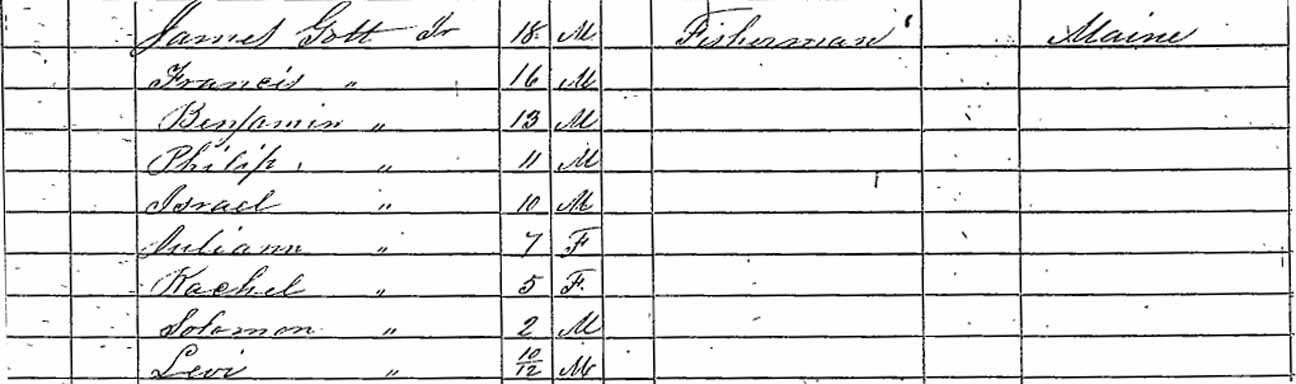 James Gott Jr 18 M Fisherman Maine
Francis " 16 M
Benjamin " 13 M
Philip " 11 M
Israel " 10 M
Juliann " 7 F
Rachel " 5 F.
Solomon " 2 M
Levi " 10/12 M